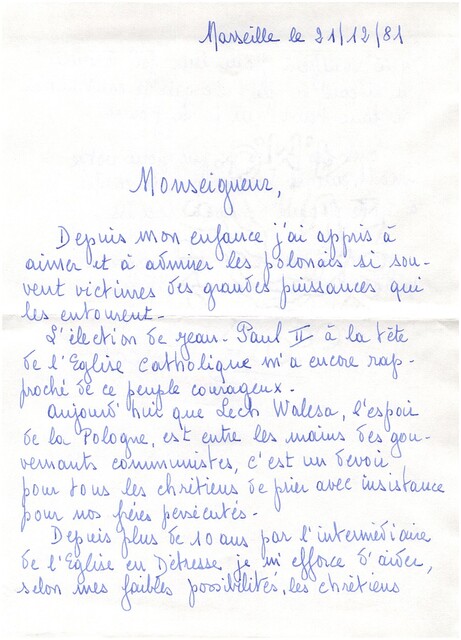 Marseille le 21/12/81
Monseigneur,
Depuis mon enfance j'ai appris à
aimer et à admirer les polonais si sou-
vent victimes des grandes puissances qui
les entourent.
L'élection de Jean-Paul II à la tête
de l'Eglise Catholique m'a encore rap-
proché de ce peuple courageux.
Aujourd'hui que Lech Walesa, l'espoir
de la Pologne, est entre les mains des gou-
vernants communistes, c'est un devoir
pour tous les chrétiens de prier avec insistance
pour nos frères persécutés.
Depuis plus de 10 ans par l'intermédiaire
de l'Eglise en Détresse je m'efforce d'aider,
selon mes faibles possibilités, les chrétiens